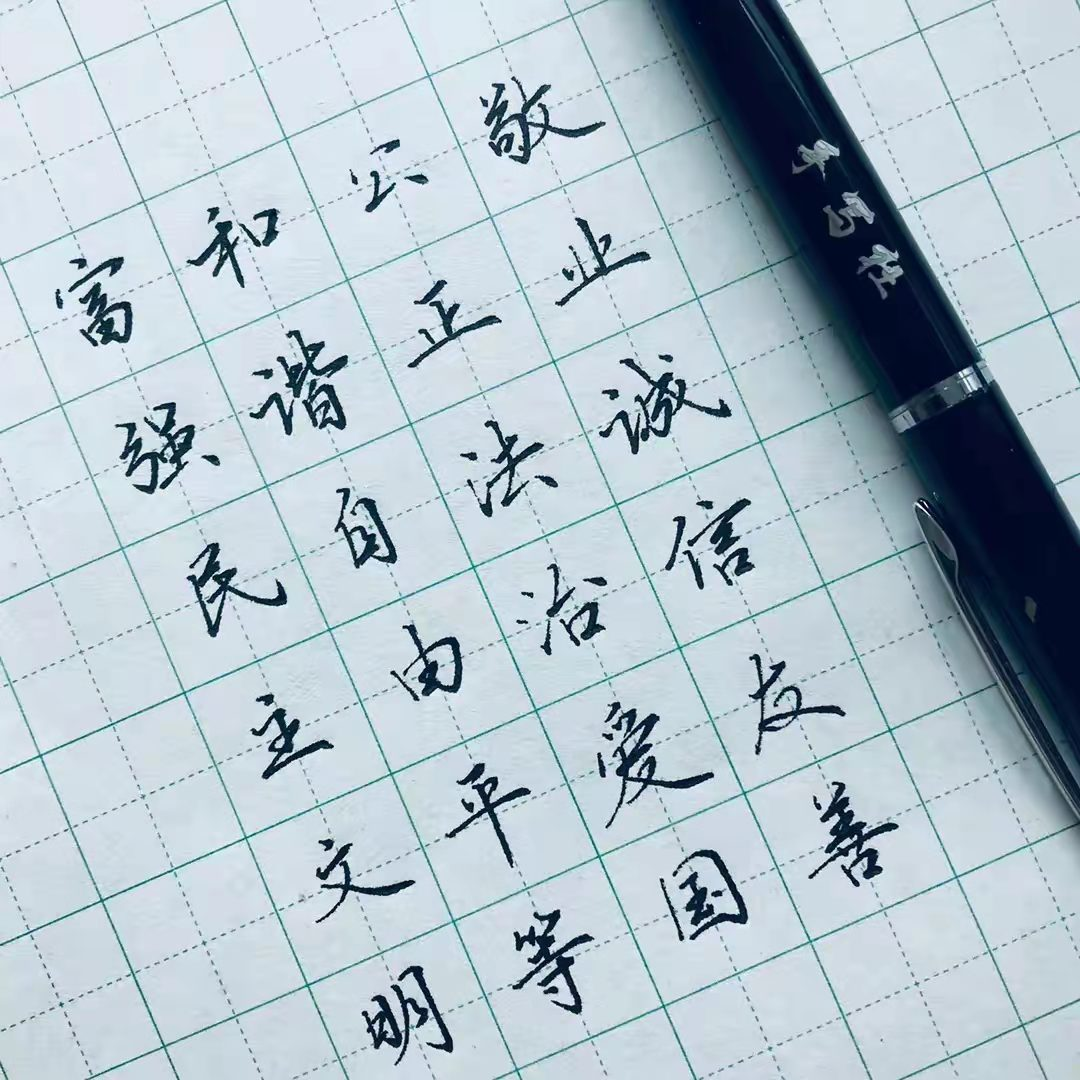 富强民主文明
和谐自由平等
公正法治爱国
敬业诚信友善
手写社